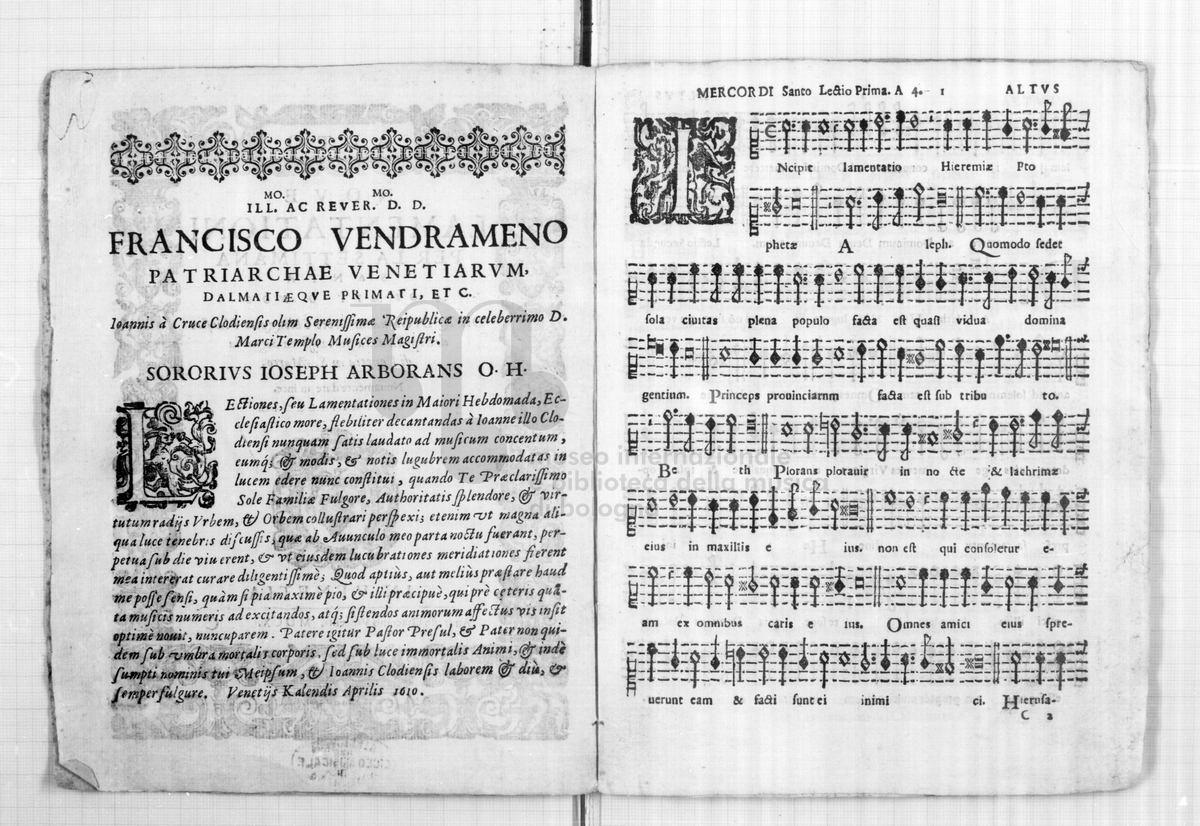 MO. MO.
ILL. AC REVER. D. D.
FRANCISCO VENDRAMENO
PATRIARCHAE VENETIARVM,
DALMATIÆQVE PRIMATI, ET C.
Ioannis à Cruce Clodiensis olim Serenissimæ Reipublicæ in celeberrimo D.
Marci Templo Musices Magistri.
SORORIVS IOSEPH ARBORANS O. H.
LEctiones, seu Lamentationes in Maiori Hebdomada, Ec-
clesiastico more, flebiliter decantandas à Ioanne illo Clo-
diensi nunquam satis laudato ad musicum concentum,
eumq; & modis, & notis lugubrem accommodatas in
lucem edere nunc constitui, quando Te Præclarissimo
Sole Familiæ Fulgore, Authoritatis splendore, & vir-
tutum radijs Vrbem, & Orbem collustrari perspexi; etenim vt magna ali-
qua luce tenebris discussis, quæ ab Auunculo meo parta noctu fuerant, per-
petua sub die viuerent, & vt eiusdem lucubrationes meridiationes fierent
mea intererat curare diligentissimè; Quod aptiùs, aut meliùs præstare haud
me posse sensi, quàm si pia maxime pio, & illi præcipuè, qui prè ceteris quā-
ta musicis numeris ad excitandos, atq; sistendos animorum affectus vis insit
optimè nouit, nuncuparem. Patere igitur Pastor Presul, & Pater non qui-
dem sub vmbra mortalis corporis, sed sub luce immortalis Animi, & indè
sumpti nominis tui Meipsum, & Ioannis Clodiensis laborem & diù, &
semper fulgure. Venetijs Kalendis Aprilis 1610.
MERCORDI Santo Lectio Prima. A 4. 1 ALTVS
INcipit lamentatio Hieremiæ Pto
phetæ A leph. Quomodo sedet
sola ciuitas plena populo facta est quasi vidua domina
gentium. Princeps prouinciarum facta est sub tribu to.
Be th Plorans plorauit in no cte & lachrimæ
eius in maxillis e ius. non est qui consoletur e-
am ex omnibus caris e ius. Omnes amici eius spre-
uerunt eam & facti sunt ei inimi ci. Hierusa-
C 2
museo internazionale
e biblioteca della musica
di bologna